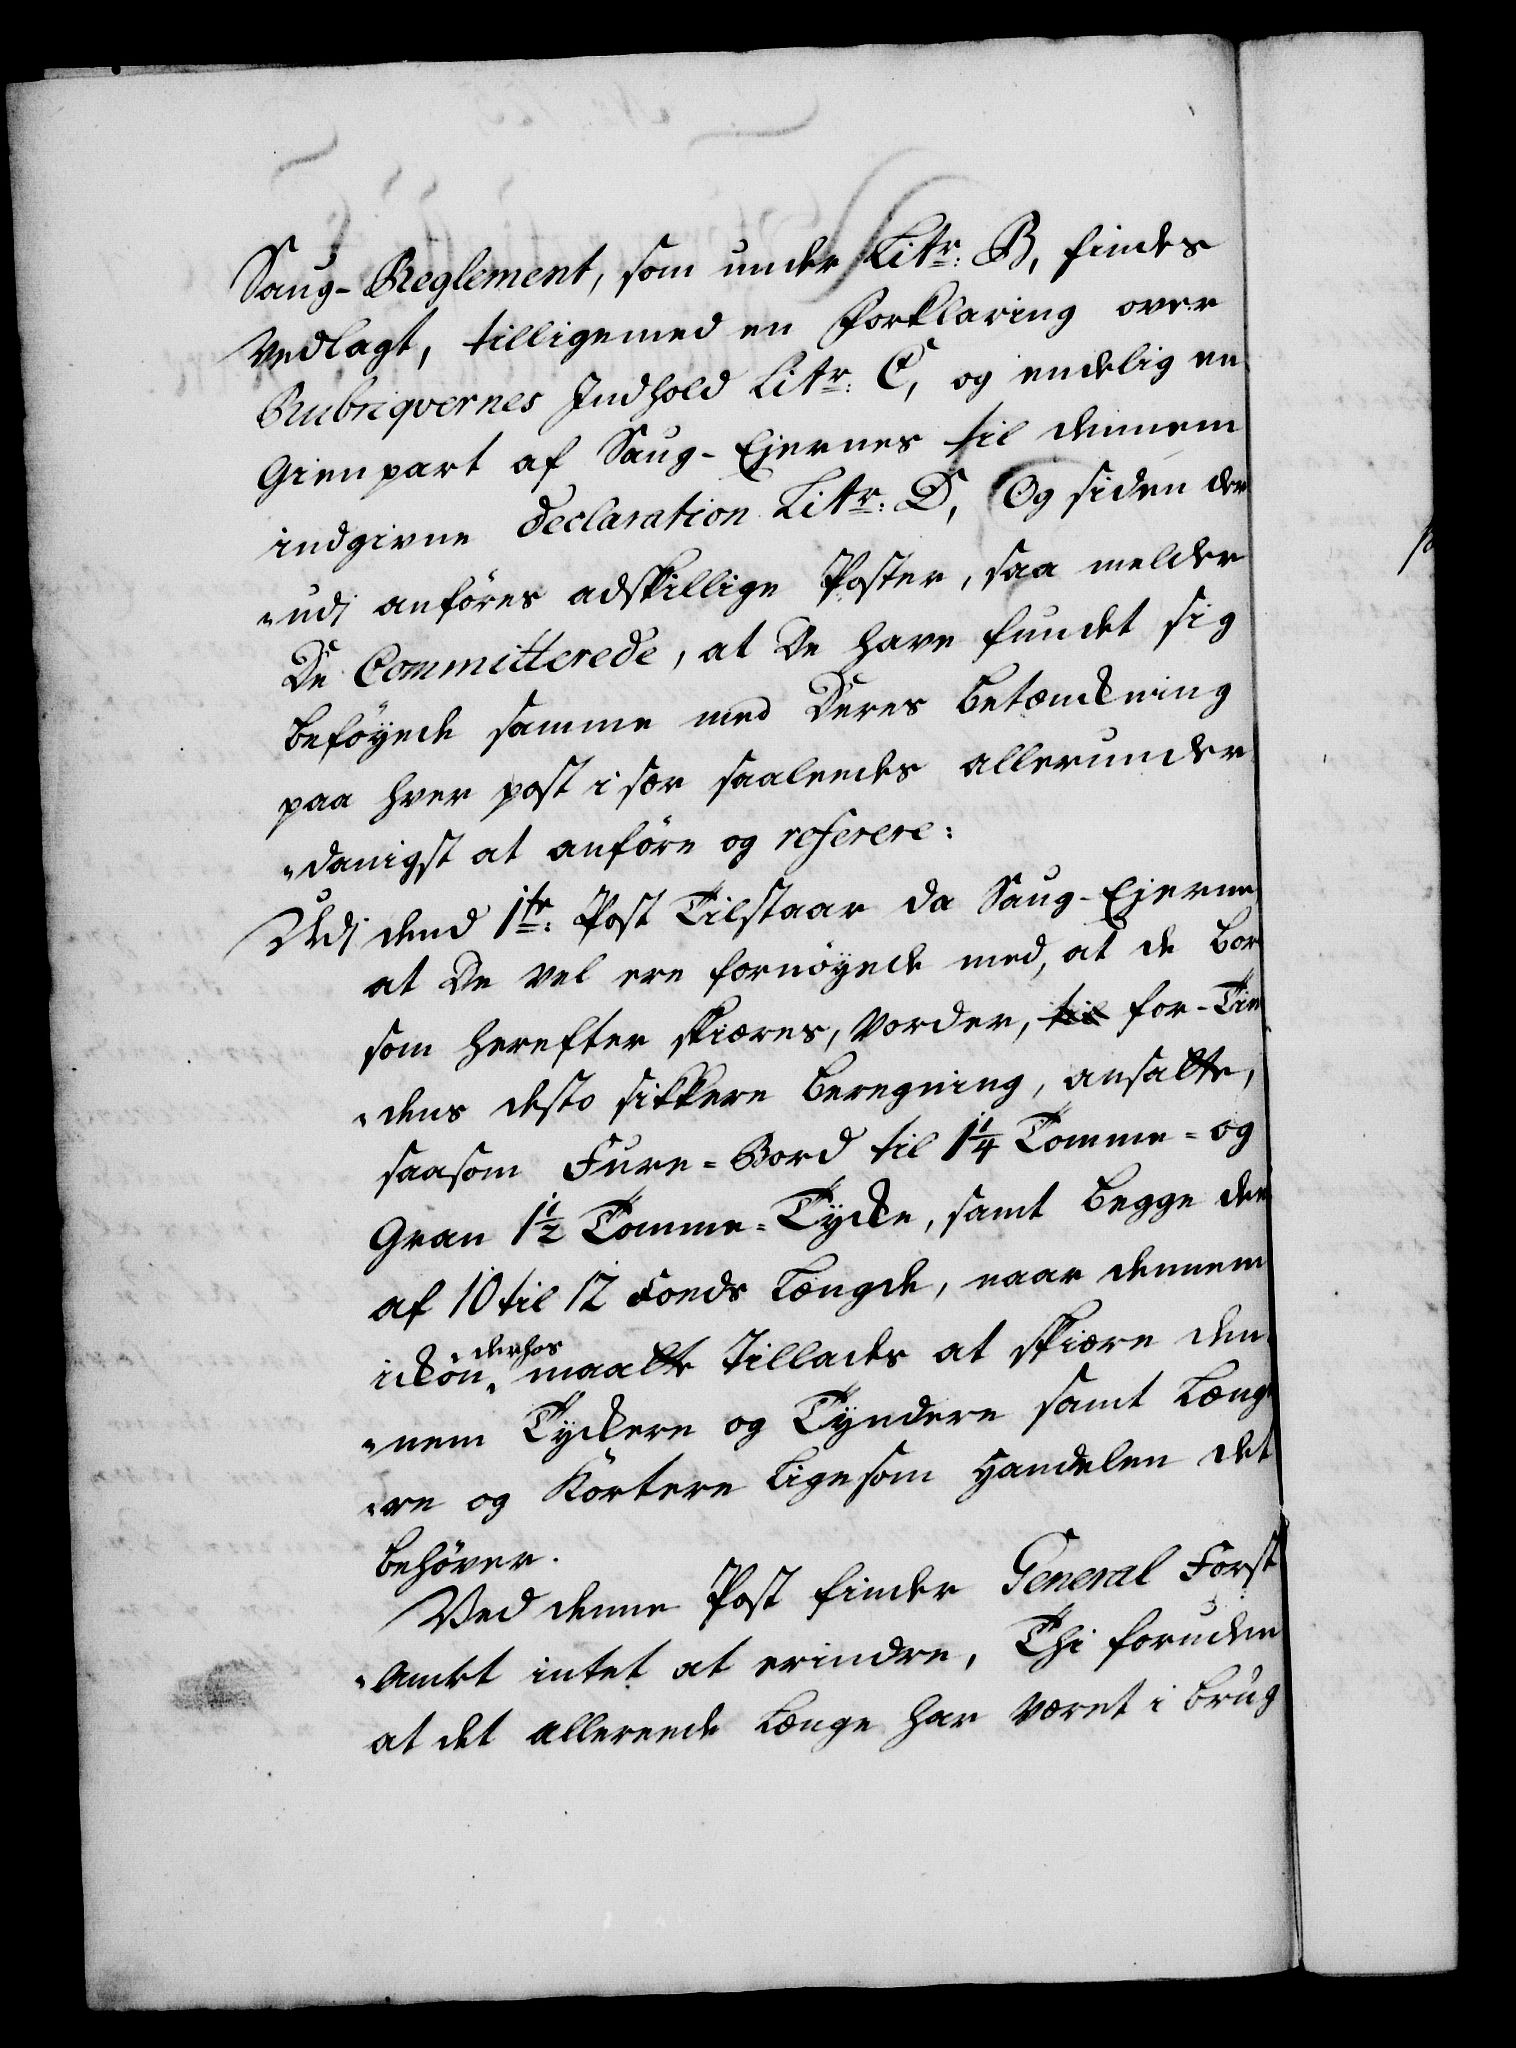 Saug-Reglement, som under Litr: B, findes
vedlagt, tilligemed en Forklaring over
Rubriqvernes Indhold Litr: C, og endelig en
Gienpart af Saug-Ejernes til dennem
indgivne Declaration Litr: D, Og siden der
„udj anföres adskillige Poster, saa melder
De Committerede, at De have fundet sig
beföyede samme med Deres Betænckning
paa hver post i sær saaledes allerunder
„danigst at anföre og referere:
Udj dend 1te: Post Tilstaar da Saug-Ejerne
at De vel ere fornöyede med, at de Bor
som herefter skiæres, vorder, til for-Tin
„dens desto sikkere Beregning, ansatte,
saasom Fure-Bord til 1 1/4 Tomme- og
Gran 1 1/2 Tomme-Tycke, samt begge dee
af 10 til 12 Foeds Længde, naar dennem
ickun „derhos maatte Tillades at skiære den
„nem Tyckere og Tyndere samt Læng
„re og Kortere Ligesom Handelen det
behöver.
Ved denne Post finder General Forst
„Amtet intet at erindre, Thi foruden
at det allereede Længe har været i brug